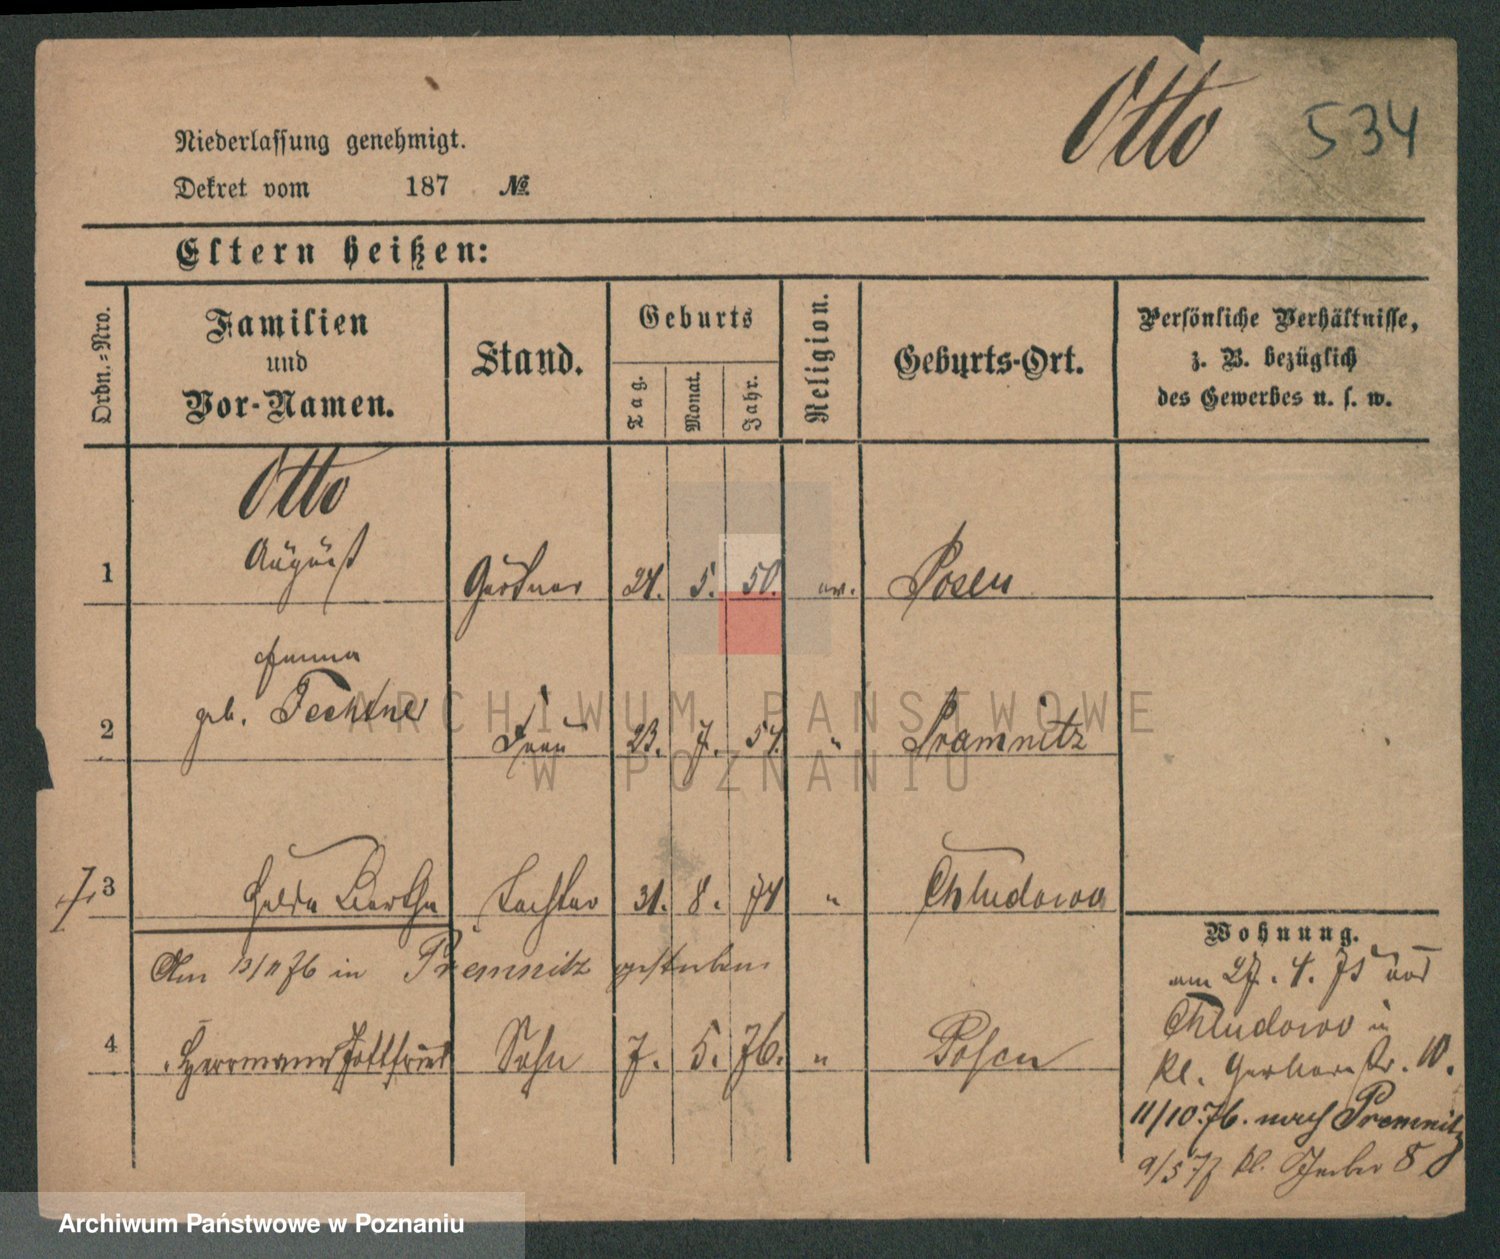 Otto 534
Niederlassung genehmigt.
Dekret vom 187 №
Eltern heißen:
Ordn.-Nro.
Familien
und
Vor-Namen.
Stand.
Geburts
Tag.
Monat.
Jahr.
Religion.
Geburts-Ort.
Persönliche Verhältnisse,
z. B. bezüglich
des Gewerbes u. s. w.
Otto
1 August Gärtner 24. 5. 50. ev. Posen
geb. Techtner
2 Frau 23. 7. 54. " Premnitz
3 Bertha Tochter 31. 8. 74 " Chludowo
Am 13/11 76 in Premnitz gestorben
4 Herrmann Gottfried Sohn 7. 5. 76. " Posen
Wohnung.
am 27. 4. 75 von
Chludowo in
Kl. Gerberstr. 10.
11/10.76. nach Premnitz
9/5 77 kl. 8
ARCHIWUM PAŃSTWOWE
W POZNANIU
Archiwum Państwowe w Poznaniu